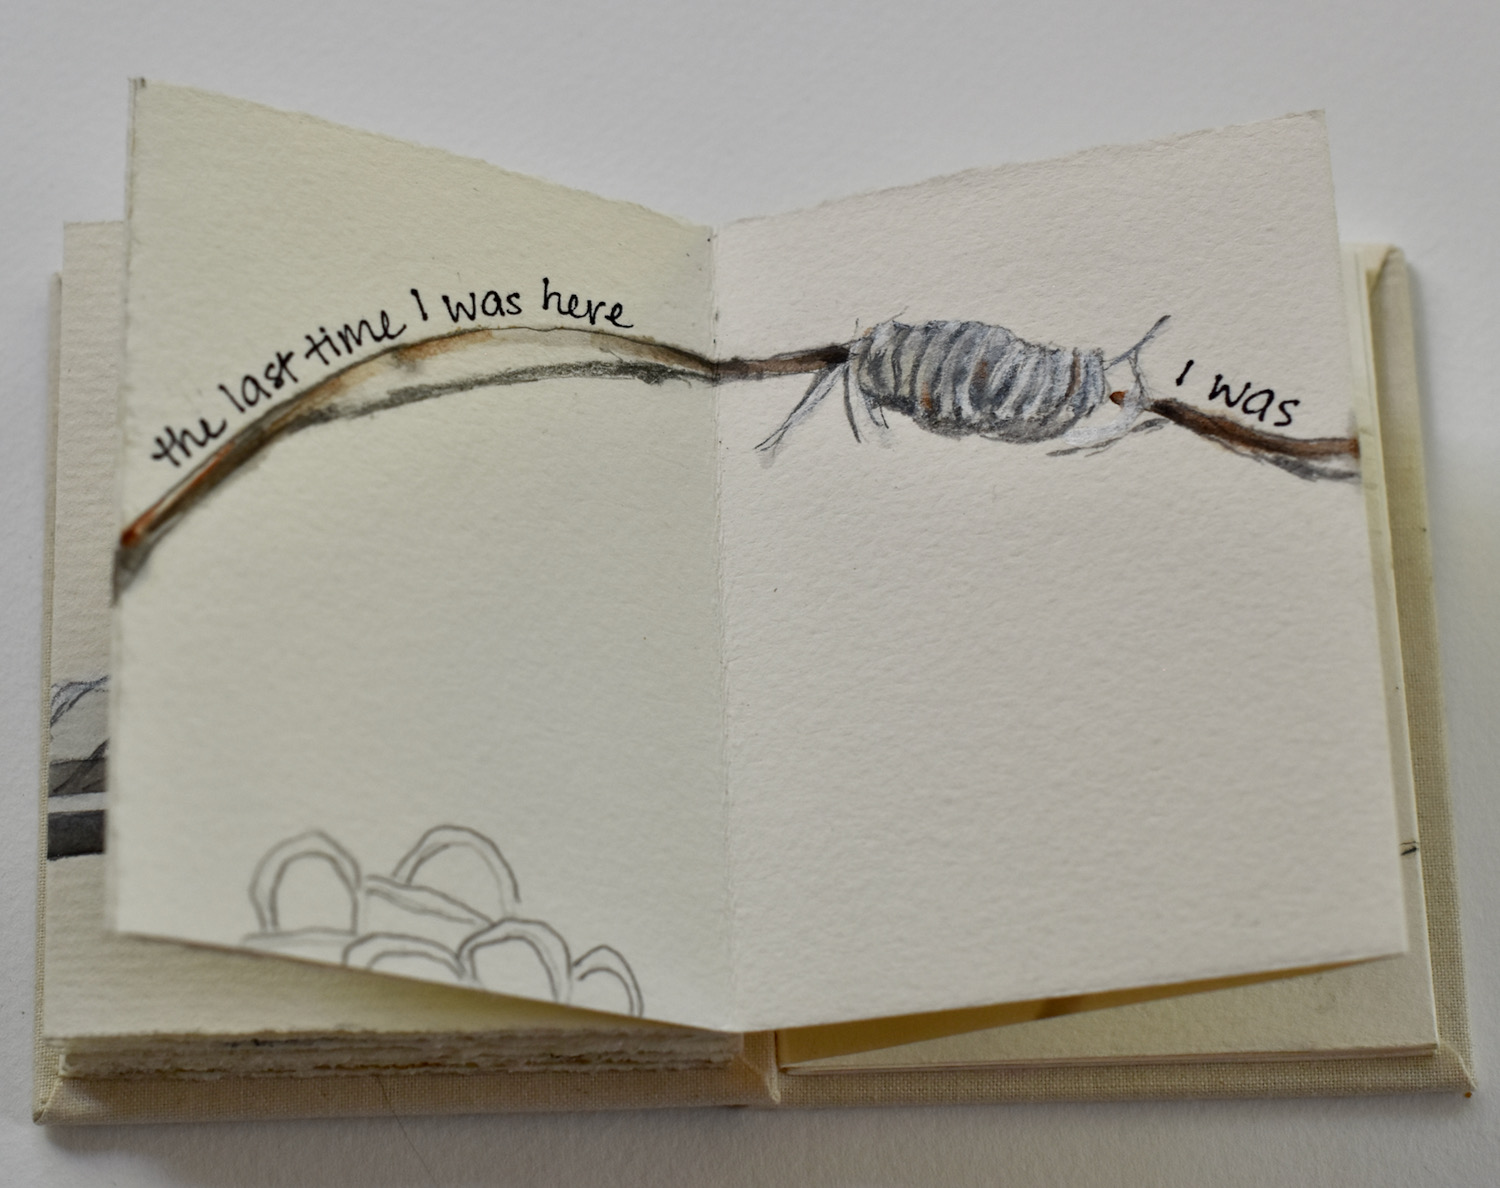 the last time I was here
I was